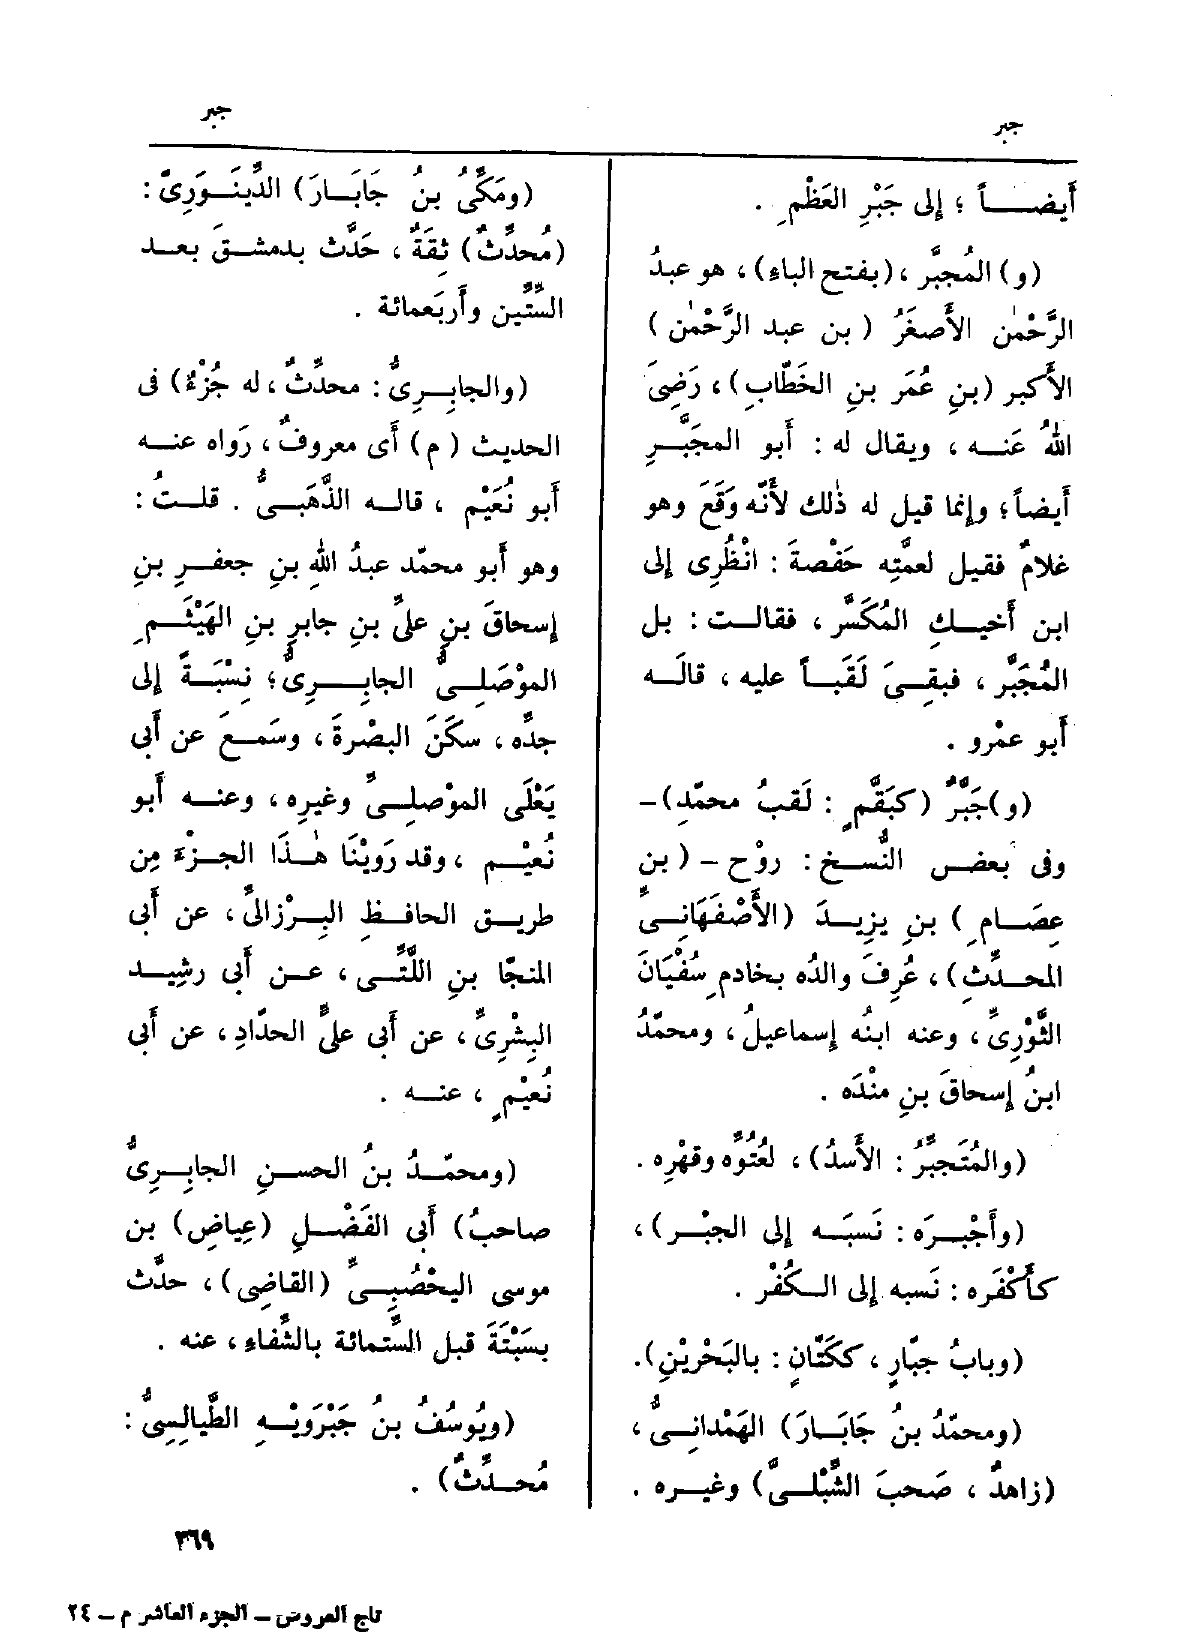 جبر
جبر
أَيضــاً ؛ إِلى جَبْرِ العَظْمِ .
(و) المُجبَّر ، (بفتح الباءِ) ، هو عبدُ
الرَّحْمٰن الأَصغَرُ ( بن عبد الرَّحْمٰن )
الأَكبر (بنِ عُمَر بنِ الخَطّابِ) ، رَضِىَ
اللهُ عَنــه ، ويقال له : أَبو المجَبَّــرِ
أَيضاً ؛ وإِنما قيل له ذٰلك لأَنّه وَقَعَ وهو
غلامٌ فقيل لعمَّتِه حَفْصةَ : انْظُرِى إِلى
ابن أَخيــكِ المُكَسَّر ، فقالــت : بل
المُجَبَّر ، فبقِــىَ لَقَبــاً عليه ، قالَــه
أَبو عمْرو .
(و)جَبَّرٌ (كبَقَّمٍ : لَقبُ محمّدِ) –
وفى بعض النُّســخ : روْح – (بن
عِصَــامِ ) بنِ يزِيــدَ (الأَصْفَهَانِــىِّ
المحــدِّثِ) ، عُرِفَ والدُه بخادمِ سُفْيَانَ
الثَّوْرِىِّ ، وعنه ابنُه إِسماعيلُ ، ومحمّدُ
ابنُ إِسحاقَ بنِ منْدَه .
(والمُتَجبِّرُ : الأَسدُ) ، لعُتُوِّه وقهْرِه .
(وأَجْبــرَه : نَسبَــه إِلى الجبْــر) ،
كأَكْفَره : نَسبه إِلى الــكُفْر .
(وبابُ جبّارٍ ، ككَتّانٍ : بالبَحْريْنِ).
(ومحمّدُ بنُ جَابَــارَ) الهَمْدانِــىُّ ،
(زاهدٌ ، صَحبَ الشِّبْلــىَّ) وغيــره .
(ومَكِّىُّ بنُ جَابَــارَ) الدِّينَــوَرِىّ :
(مُحدِّثٌ) ثِقَةٌ ، حَدَّث بدمشــقَ بعــد
السِّتِّين وأَربَعمائة .
(والجابِــرِىُّ : محدِّثٌ ، له جُزْءٌ) فى
الحديث ( م ) أَى معروفٌ ، رَواه عنــه
أَبو نُعَيْمٍ ، قالــه الذَّهَبــىُّ . قلــتُ :
وهو أَبو محمّد عبدُ اللهِ بنِ جعفــرِ بنِ
إِسحاقَ بنِ علىِّ بنِ جابرِ بنِ الهَيْثَــمِ
الموْصَلِــىُّ الجابِــرِىُّ ؛ نِسْبَــةً إِلى
جدِّه ، سكَنَ البصْرةَ ، وسَمــعَ عن أَبى
يَعْلَى الموْصلِــىِّ وغيرِه ، وعنــه أَبو
نُعيْــم ، وقد رَوَيْنَا هٰــذَا الجــزْءَ مِن
طريــق الحافــظِ البِــرْزالىِّ ، عن أَبى
المنجّا بنِ اللَّتِّــى ، عــن أَبى رشِيــد
البِشْرِىِّ ، عن أَبى علىٍّ الحدّادِ ، عن أَبى
نُعيْمٍ ، عنــه .
(ومحمّــدُ بنُ الحسنِ الجابِــرِىُّ
صاحبُ) أَبى الفَضْــلِ (عِياضِ) بن
موسى اليحْصُبِــىِّ (القاضِى) ، حدَّث
بسَبْتَةَ قبل السِّتمائة بالشِّفاءِ ، عنه .
(ويُوسُفُ بنُ جَبْرَويْــهِ الطَّيالِسِىُّ :
مُحــدِّثٌ) .
٣٦٩
تاج العروس – الجزء العاشر م – ٢٤